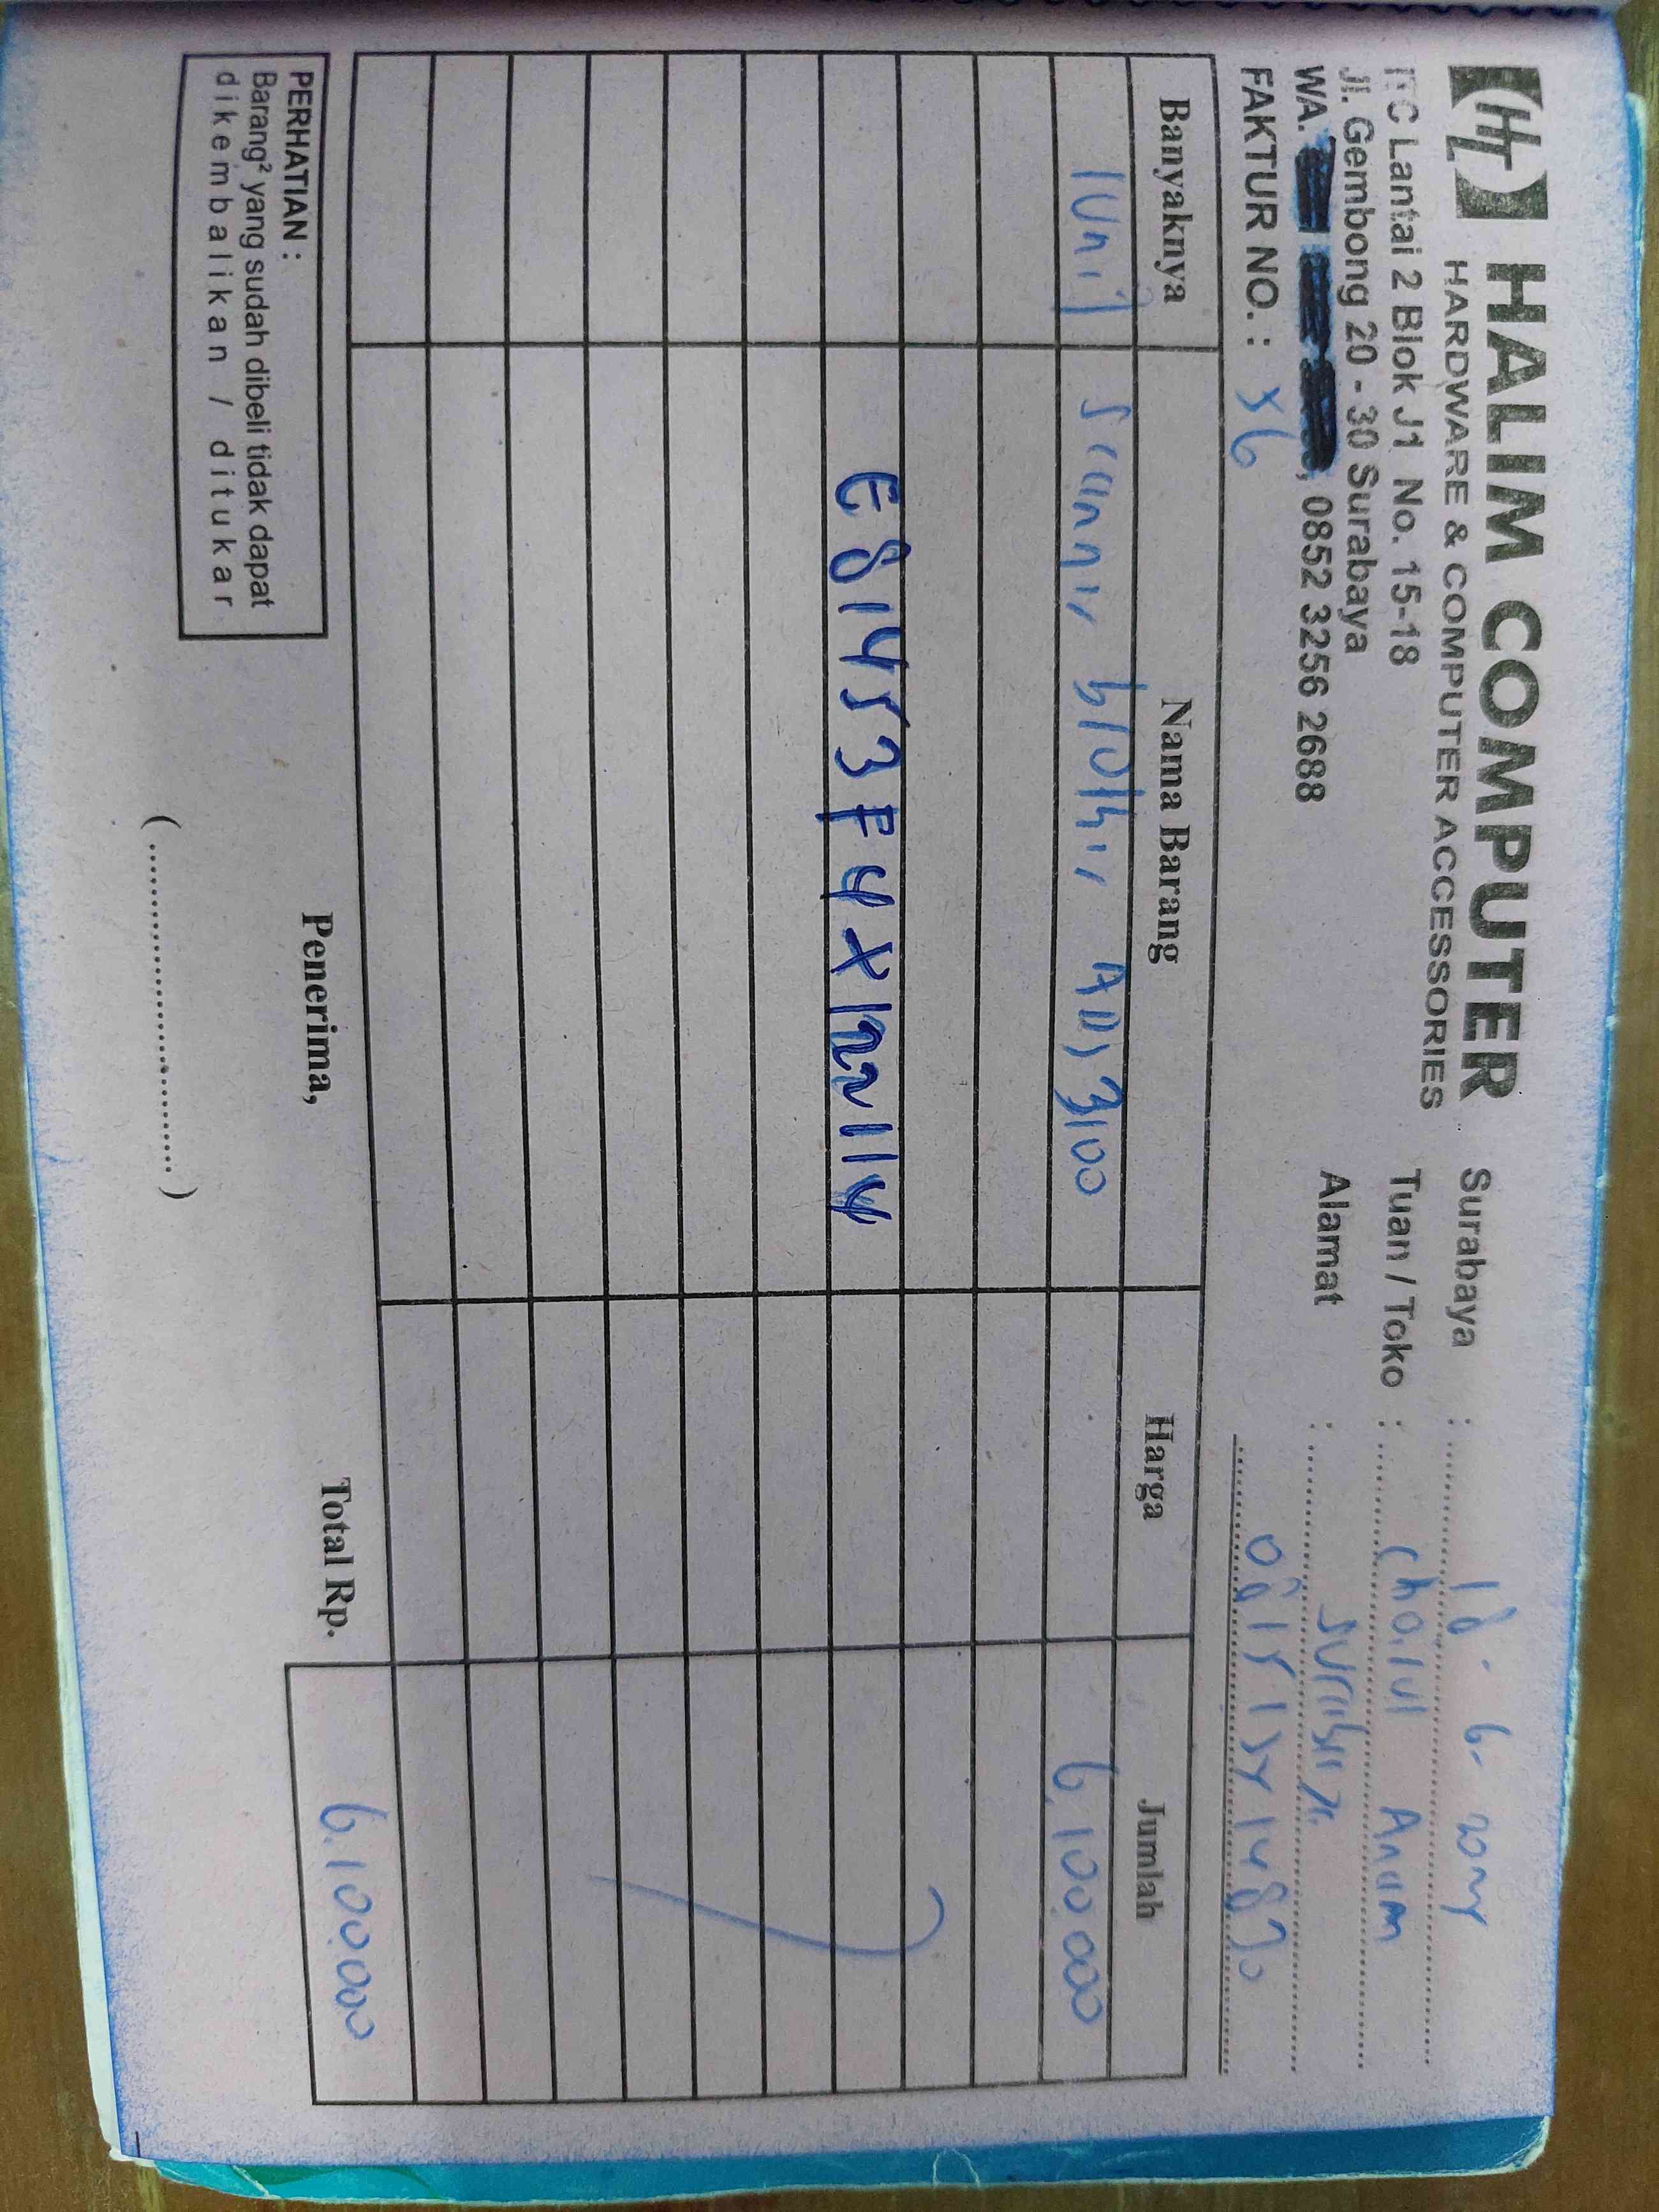 HL HALIM COMPUTER
HARDWARE & COMPUTER ACCESSORIES
ITC Lantai 2 Blok J1 No. 15-18
Jl. Gembong 20 - 30 Surabaya
WA. , 0852 3256 2688
FAKTUR NO. : 56
Surabaya : 18 - 6 - 2024
Tuan / Toko : Choirul Anam
Alamat : Surabaya
Banyaknya Nama Barang Harga Jumlah
1 Unit Scanner brother ADS 3100 6.100.000
E81453F4X122114
PERHATIAN :
Barang² yang sudah dibeli tidak dapat
dikembalikan / ditukar
Penerima,
(..............................)
Total Rp. 6.100.000